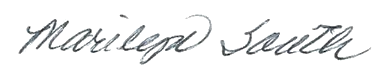 Marilyn South